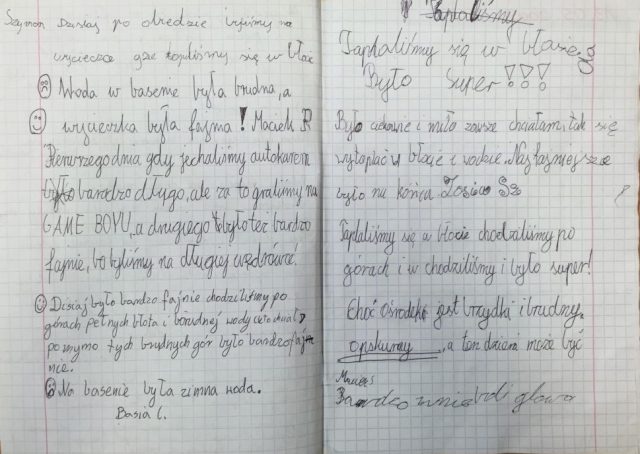 Szymon Dzisiaj po obiedzie byliśmy na
wycieczce gdzie topiliśmy się w błocie
Woda w basenie była brudna, a
wycieczka była fajna! Maciek R
Pierwrzego dnia gdy jechaliśmy autokarem
było bardzo długo, ale za to graliśmy na
GAME BOYU, a drugiego było też bardzo
fajnie, bo byliśmy na długiej wędrówce.
Dzisiaj było bardzo fajnie chodziliśmy po
górach pełnych błota i brudnej wody
pomymo tych brudnych gór było bardzo faj-
nie.
Na basenie była zimna woda.
Basia C.
Taplaliśmy
Taplaliśmy się w błocie
Było Super!!!
Było ciekawie i miło zawsze chciałam tak się
wytaplać w błocie i wodzie. Najfajniejsze
było na końcu Zosia Sz
Taplaliśmy się w błocie chodziliśmy po
górach i w chodziliśmy i było super!
Choć Ośrodek jest brzydki i brudny,
opskurny, a ten dzień może być
Maciej S
Bardzo mnie boli głowa